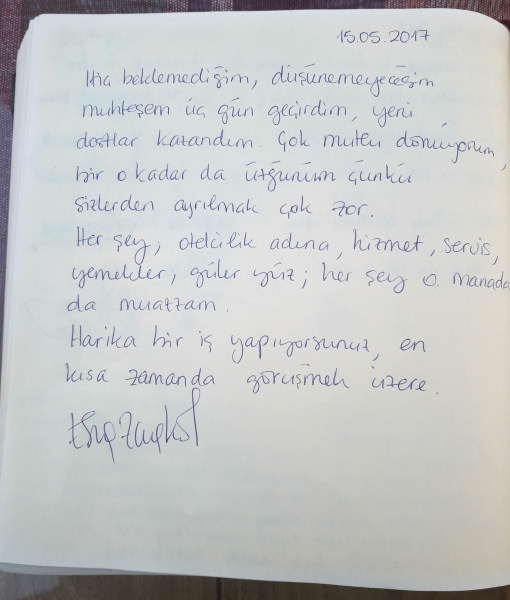 15.05.2017
Hiç beklemediğim, düşünemeyeceğim
muhteşem üç gün geçirdim, yeni
dostlar kazandım. Çok mutlu dönüyorum,
bir o kadar da üzgünüm çünkü
sizlerden ayrılmak çok zor.
Her şey; otelcilik adına, hizmet, servis,
yemekler, güler yüz; her şey o manada
da muazzam.
Harika bir iş yapıyorsunuz, en
kısa zamanda görüşmek üzere.